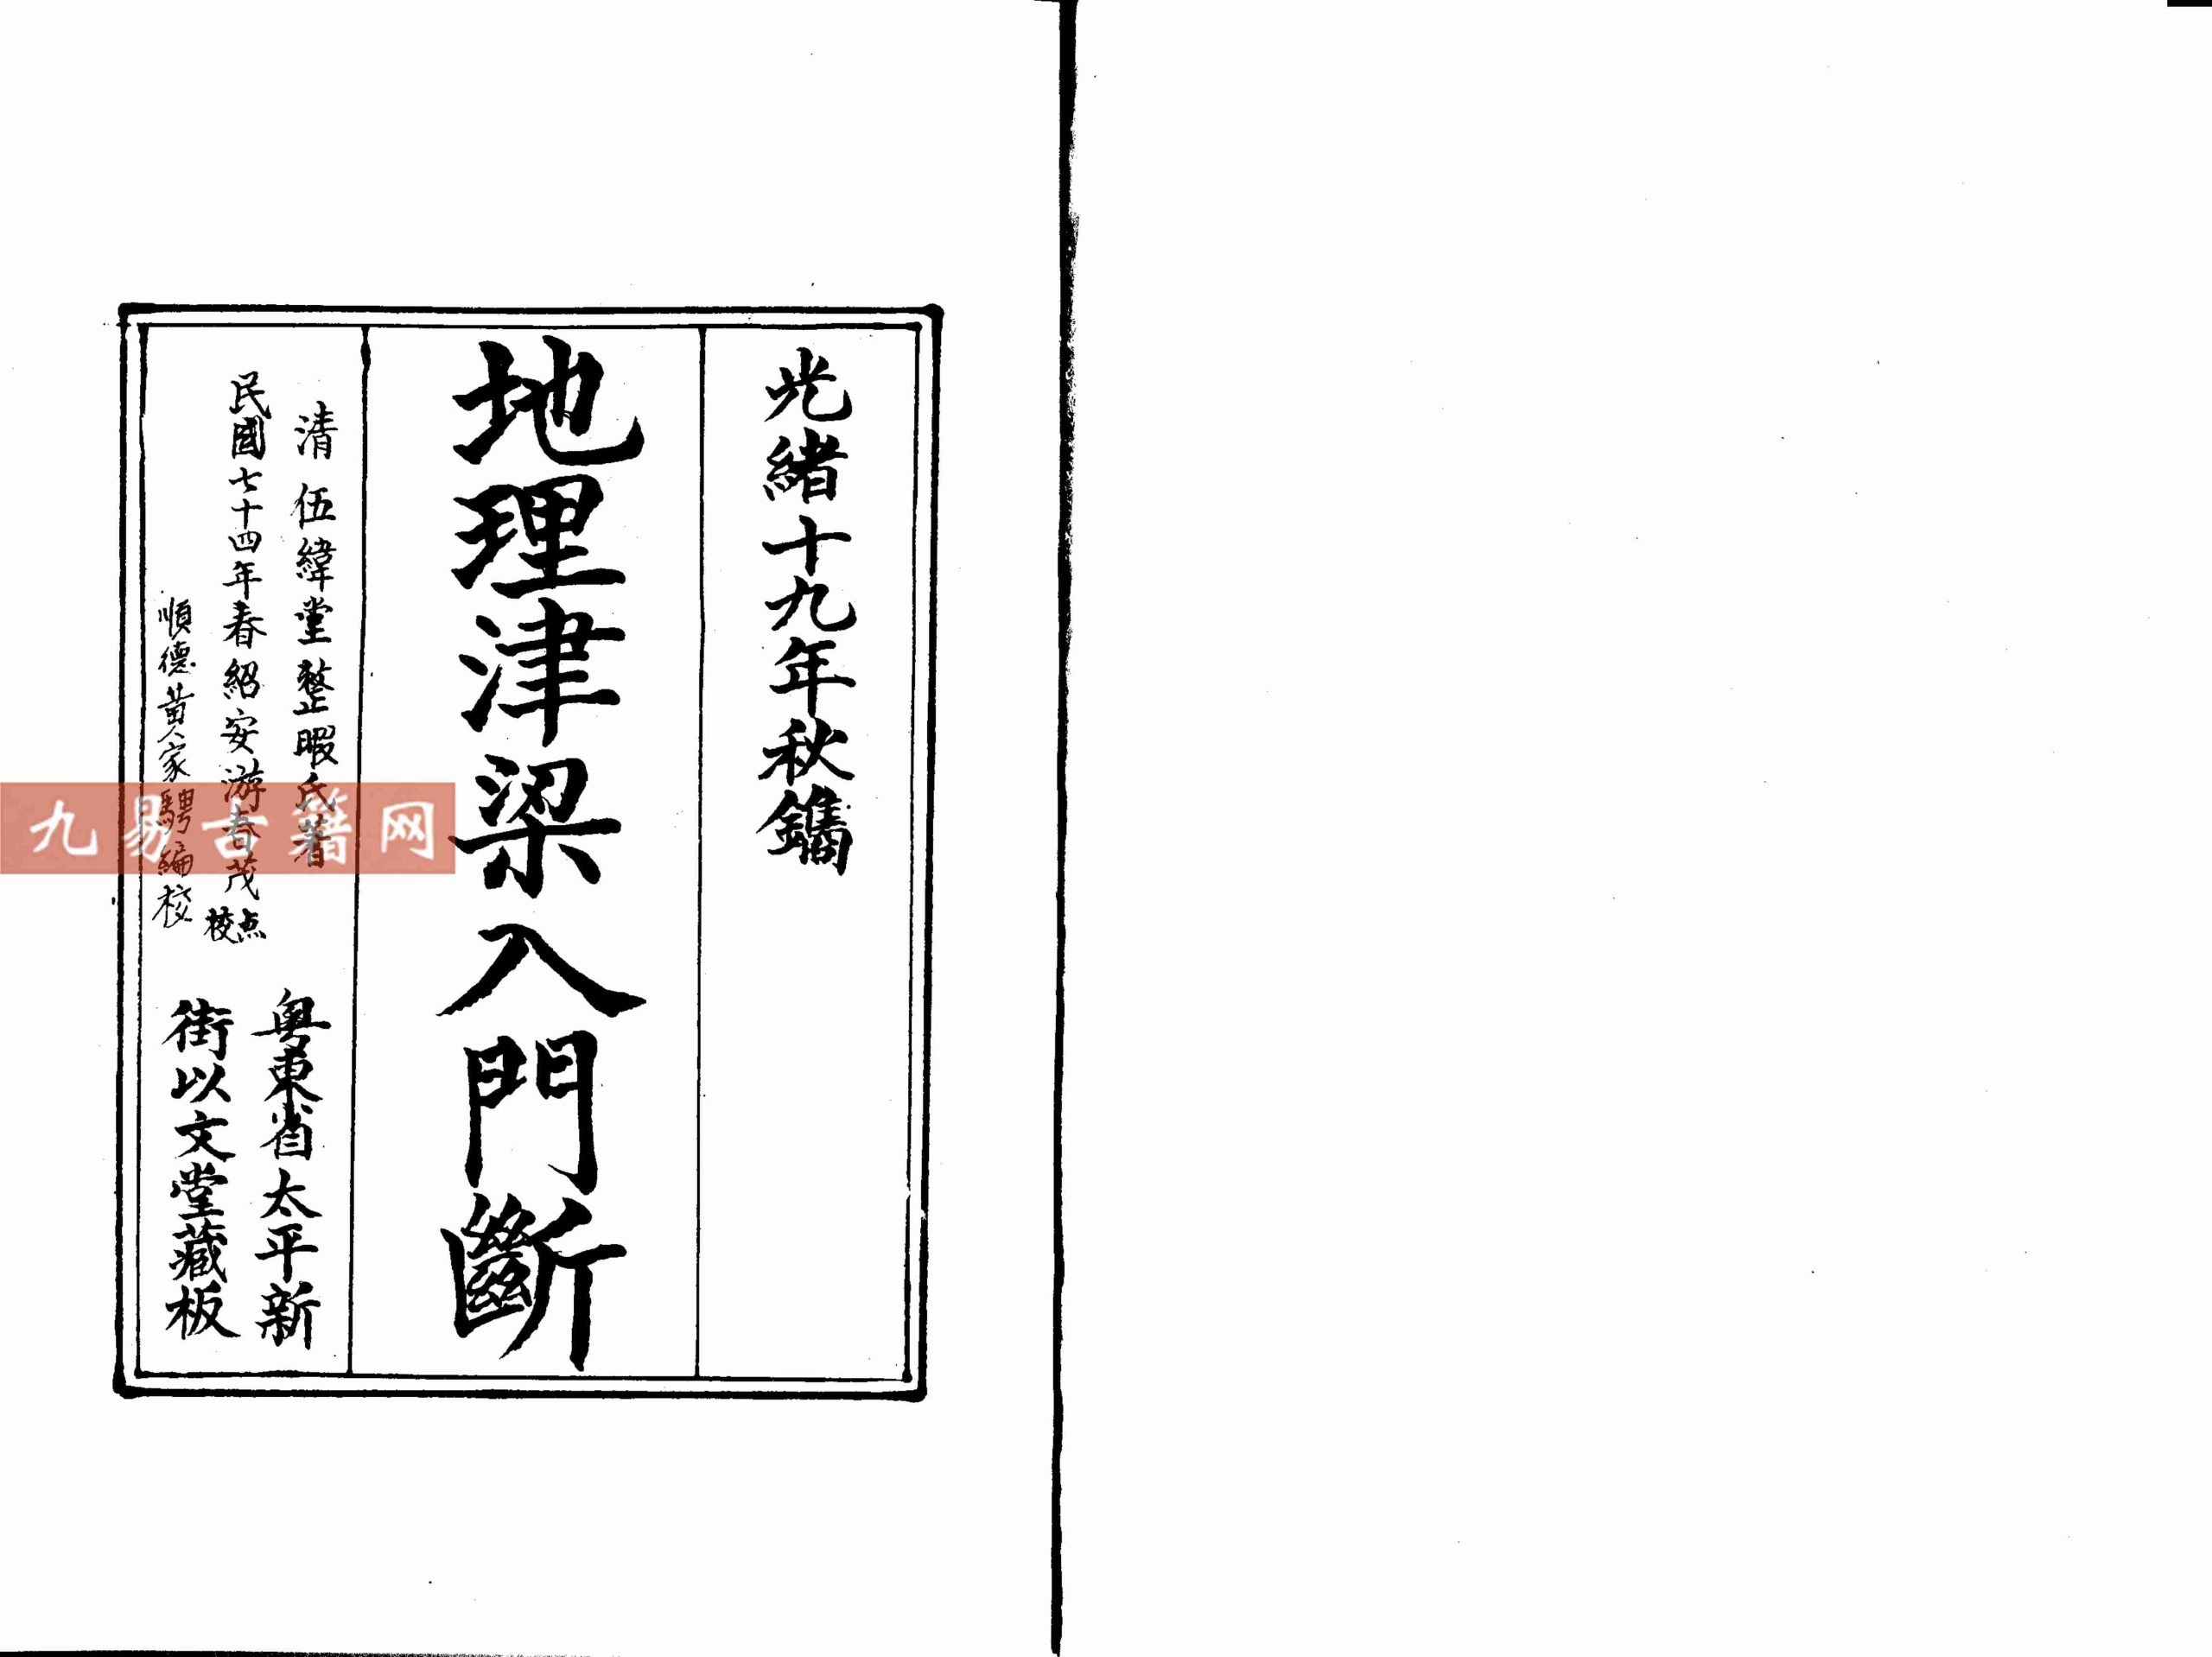 光緒十九年秋鐫
地理津梁入門斷
清 伍緯堂整暇氏著
民國七十四年春紹安游春茂点校
順德黄家騁編校
粵東省太平新
街以文堂藏板
九易古籍网